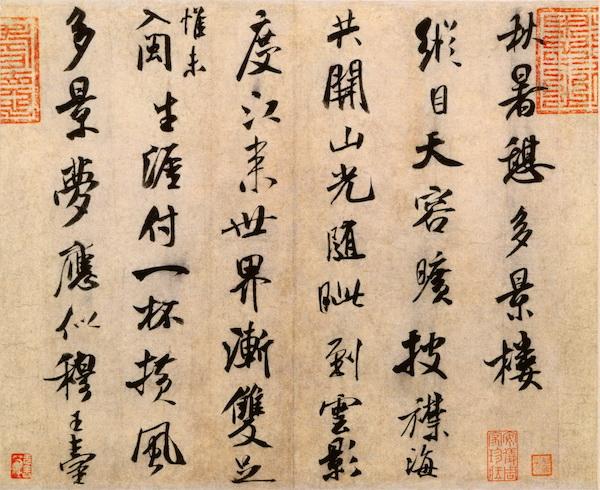 秋暑憩多景樓
縱目天容曠披襟海
共開山光随眦到雲影
度江来世界漸雙足
惟未
入閩生涯付一杯横風
多景夢應似穆王臺